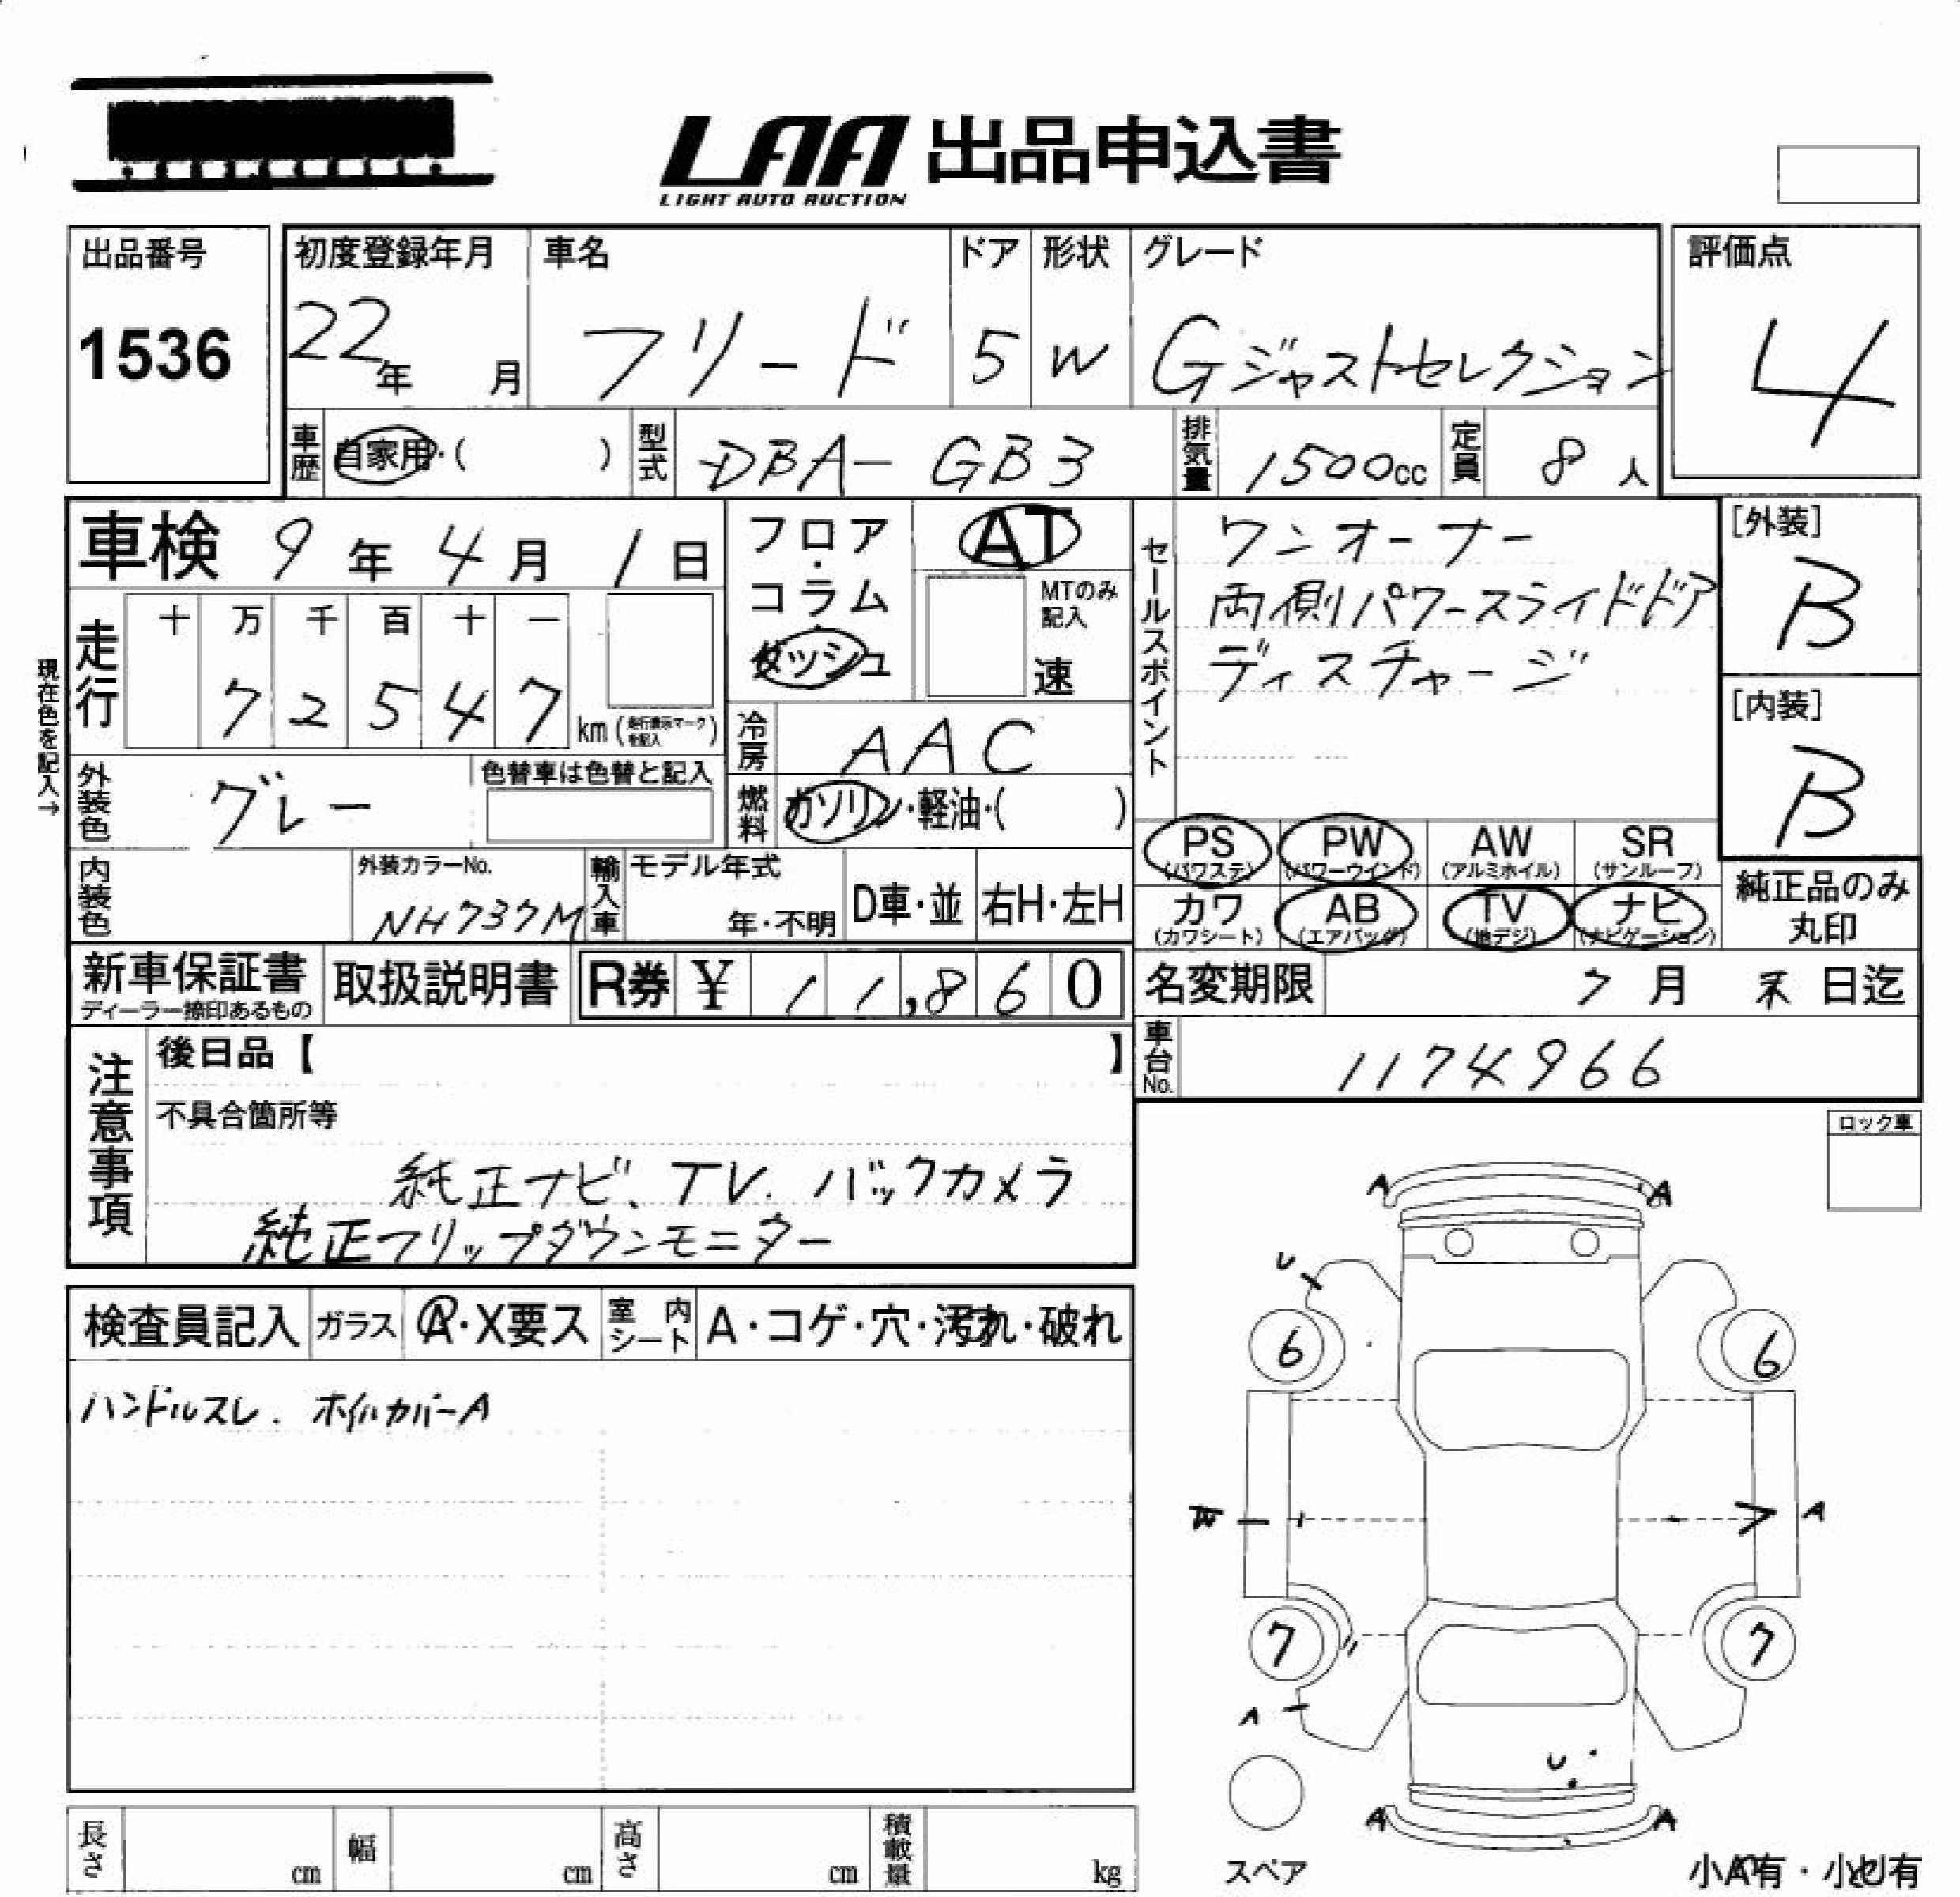 LAA 出品申込書
LIGHT AUTO AUCTION
出品番号
1536
初度登録年月
22年 月
車名
フリード
ドア
5
形状
W
グレード
Gジャストセレクション
評価点
4
車歴 自家用・( )
型式 DBA-GB3
排気量 1500cc
定員 8人
車検 9年4月1日
走行 十 万 千 百 十 一
7 2 5 4 7 km (走行表示マークを記入)
現在色を記入→
フロア・コラム・ダッシュ
AT
MTのみ記入
速
冷房 AAC
燃料 ガソリン・軽油・( )
外装色 グレー
色替車は色替と記入
内装色
外装カラーNo.
NH737M
輸入車 モデル年式
年・不明
D車・並 右H・左H
セールスポイント
ワンオーナー
両側パワースライドドア
ディスチャージ
[外装]
B
[内装]
B
PS (パワステ) PW (パワーウインド) AW (アルミホイル) SR (サンルーフ)
カワ (カワシート) AB (エアバッグ) TV (地デジ) ナビ (ナビゲーション)
純正品のみ丸印
新車保証書
ディーラー捺印あるもの
取扱説明書
R券 ¥ 11,860
名変期限 7月 末日迄
車台No. 1174966
注意事項
後日品【 】
不具合箇所等
純正ナビ、TV、バックカメラ
純正フリップダウンモニター
ロック車
検査員記入 ガラス A・X要ス 室内シート A・コゲ・穴・汚れ・破れ
ハンドルスレ、ホイルカバーA
A A
U
6 6
W A
7 7
A
U
A A
スペア
小A有・小U有
長さ cm 幅 cm 高さ cm 積載量 kg